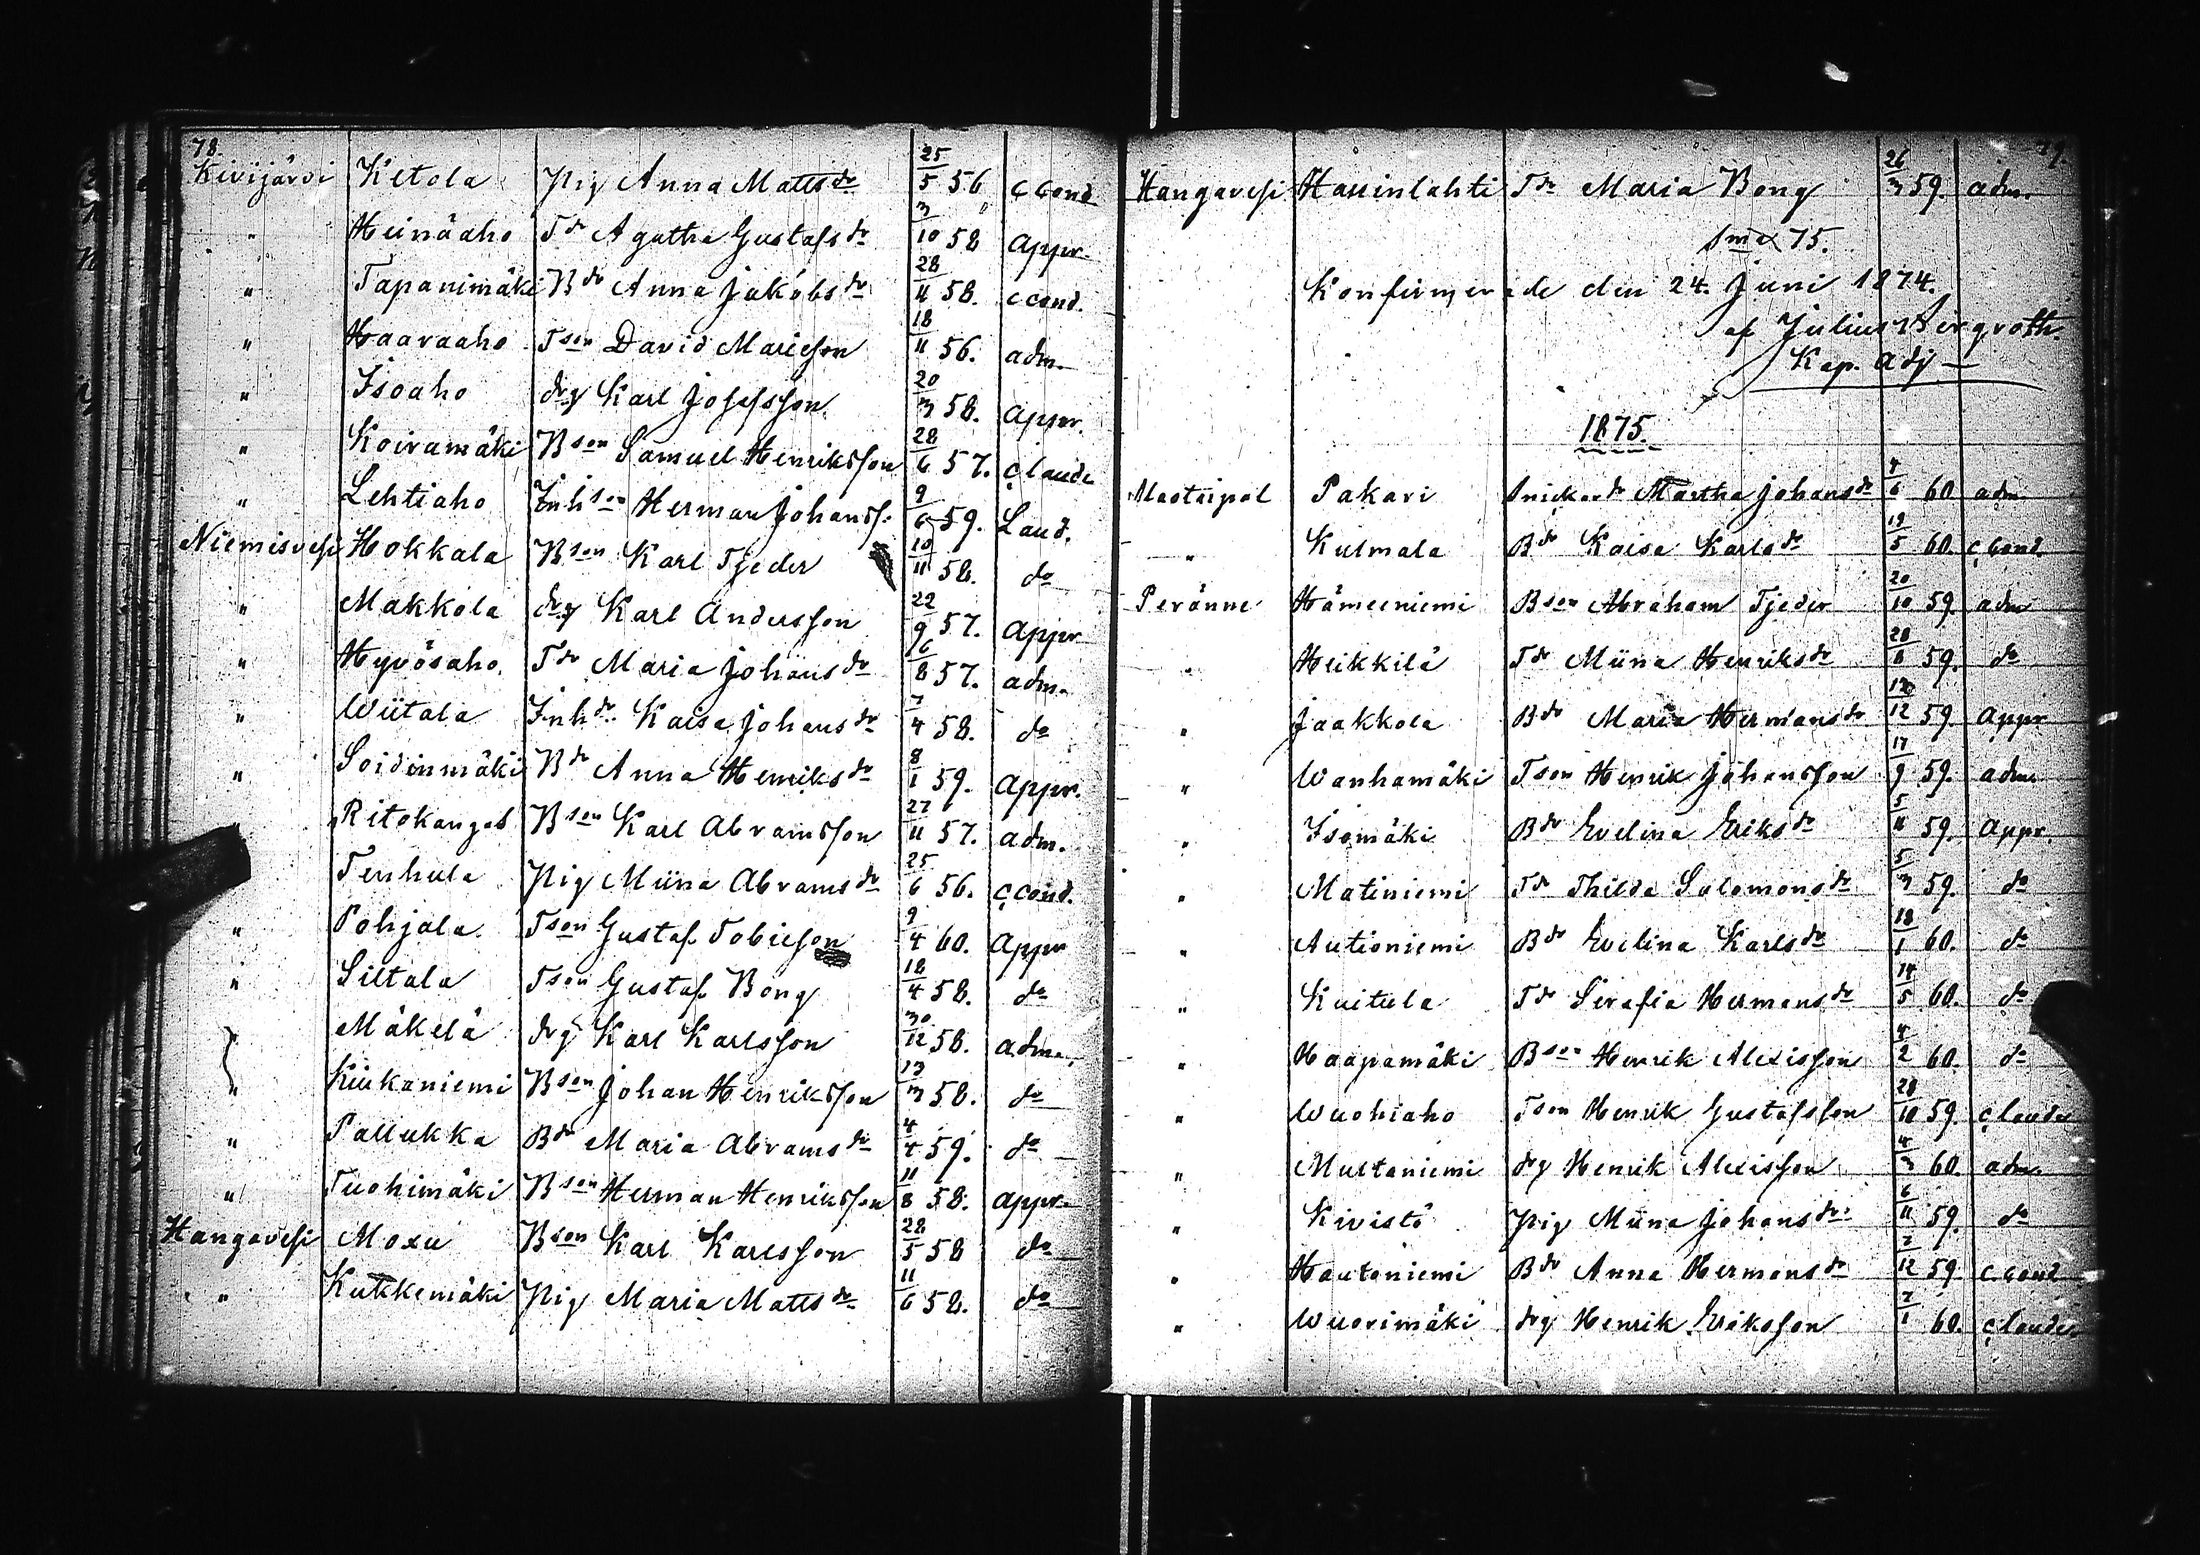 78.
Kivijärvi Ketola Pig Anna Mattsdr 25/5 56 c cond
" Heinäaho Tdr Agatha Gustafsdr 3/10 58 appr.
" Tapanimäki Bdr Anna Jakobsdr 28/11 58. c cond.
" Haaraaho Tson David Marieson 18/11 56. adm.
" Isoaho drg Karl Josefsson 20/3 58. appr.
" Koiramäki Bson Samuel Henriksson 28/6 57. c laude
" Lehtiaho Inhson Herman Johanss. 9/6 59. Laud.
Niemisvesi Hokkala Bson Karl Tjeder 10/11 58. do
" Makkola drg Karl Andersson 22/9 57. appr
" Hyvösaho. Tdr Maria Johansdr 6/8 57. adm.
" Wiitala Inhdr Kaisa Johansdr 7/4 58. do
" Soidinmäki Bdr Anna Henriksdr 8/1 59. appr.
" Ritokangas Bson Karl Abramsson 27/11 57. adm.
Tenhula Pig Miina Abramsdr 25/6 56. c cond.
" Pohjala Tson Gustaf Tobieson 9/4 60. appr
" Siltala Tson Gustaf Bong 18/4 58. do
Mäkelä drg Karl Karlsson 30/12 58. adm.
" Kiukaniemi Bson Johan Henriksson 13/3 58. do
" Pallukka Bdr Maria Abramsdr 4/4 59. do
" Tuohimäki Bson Herman Henriksson 11/8 58. appr.
Hangavesi Moxu Bson Karl Karlsson 28/5 58 do
" Kukkemäki Pig Maria Mattsdr 11/6 58. do
79.
Hangavesi Harrinlahti Tdr Maria Bong 26/3 59. adm.
75.
Konfirmerade den 24. Juni 1874.
af Julius Bergroth.
Kap. Adj
1875.
Pakari Snickardr Martha Johansdr 4/6 60 adm.
" Kulmala Bdr Kaisa Karlsdr 19/5 60. c cond.
Peränne Hämeeniemi Bson Abraham Tjeder 20/10 59. adm
" Heikkilä Tdr Miina Henriksdr 28/8 59. do
" Jaakkola Bdr Maria Hermansdr 12 59. appr
" Wanhamäki Tson Henrik Johansson 17/9 59. adm.
" Isomäki Bdr Evelina Eriksdr 5/11 59. appr.
" Matiniemi Tdr Thilda Salomonsdr 5/3 59. do
" Autioniemi Bdr Evelina Karlsdr 18/1 60. do
" Kuitula Tdr Serafia Hermansdr 14/5 60. do
" Haapamäki Bson Henrik Alexisson 4/2 60. do
" Wuohiaho Tson Henrik Gustafsson 28/10 59. c laude
" Multaniemi drg Henrik Alexisson 4/3 60. adm.
" Kivistö Pig Miina Johansdr 6/11 59. do
" Hautaniemi Bdr Anna Hermansdr 2/12 59. c. cond
" Wuorimäki drg Henrik Eriksson 2/1 60. c laude.